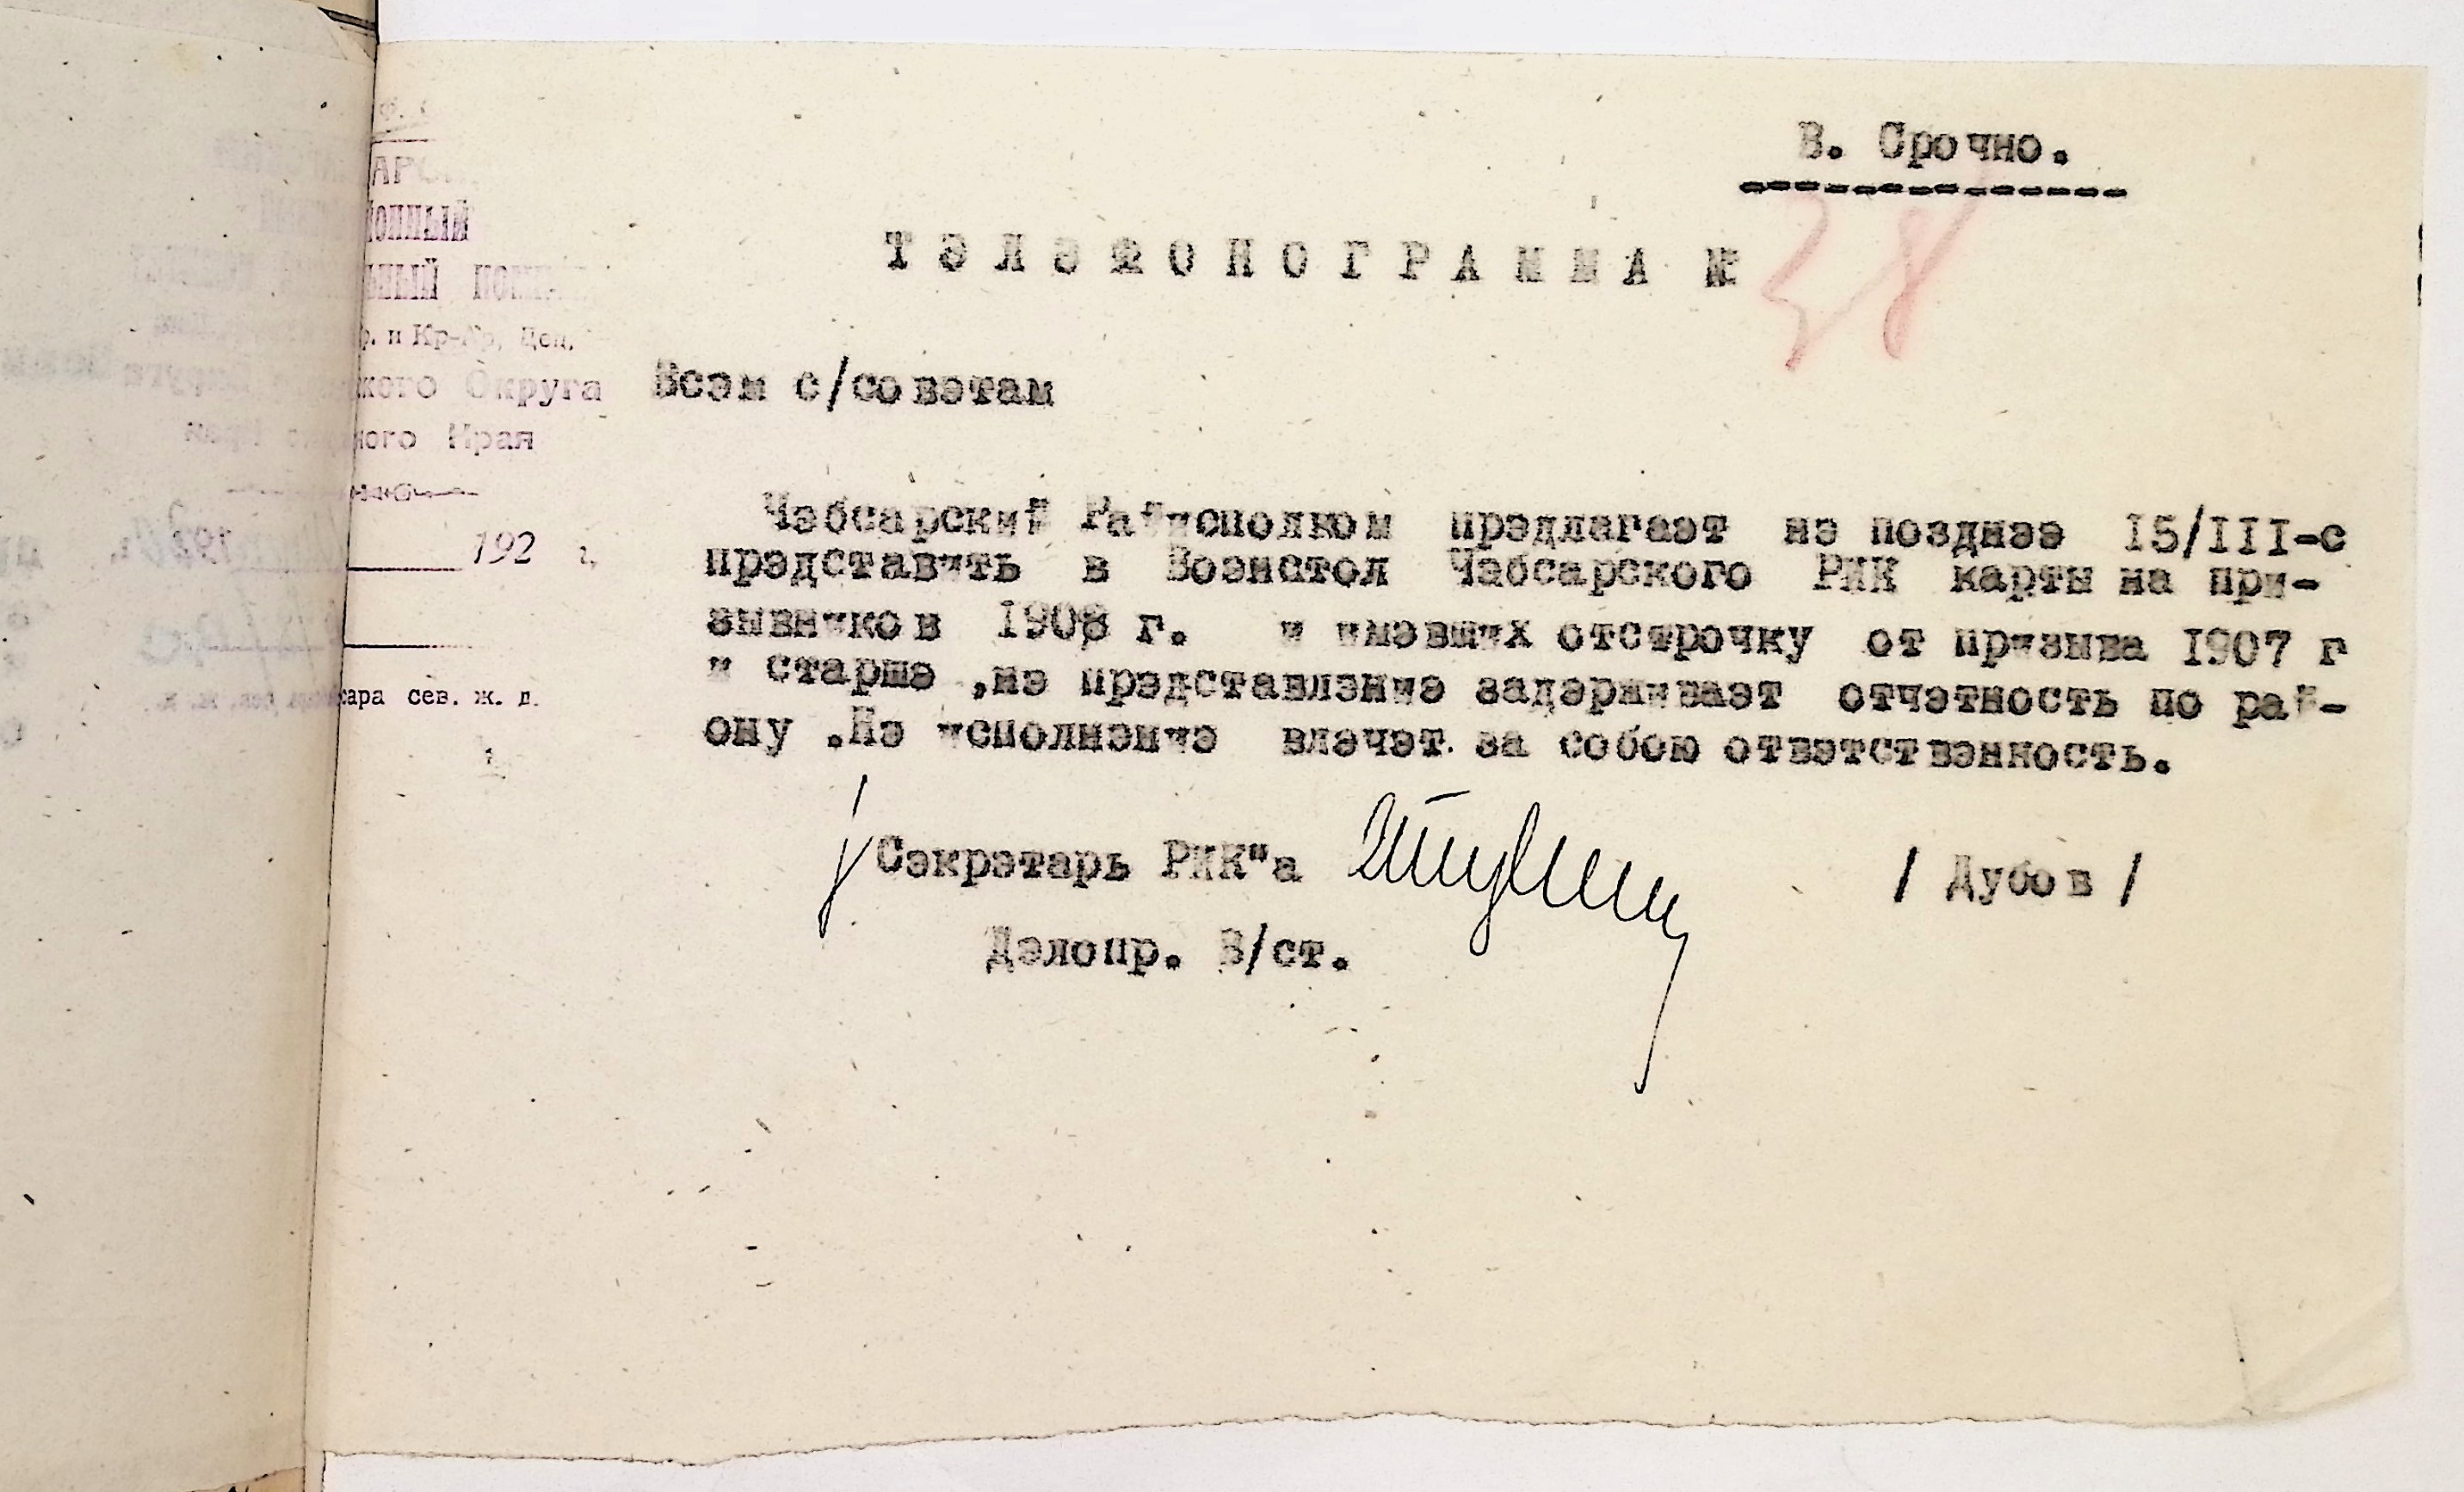 В. Срочно.
ТЭЛЭФОНОГРАММА № 38
ОННЫЙ
ЬНЫЙ
р. и Кр-Ар, Деп.
кого Округа
ного Края
192 г.
сара сев. ж. д.
Всэм с/совэтам
Чэбсарский Райисполком прэдлагаэт нэ позднээ I5/III-с
прэдставить в Воэнстол Чэбсарского РИК карты на при-
зывников 1908 г. и имэвших отстрочку от призыва 1907 г
и старшэ ,нэ прэдставлэниэ задэрживаэт отчэтность по рай-
ону .Нэ исполнэниэ влэчэт за собою отвэтствэнность.
Сэкрэтарь РИК"а / Дубов /
Дэлопр. В/ст.